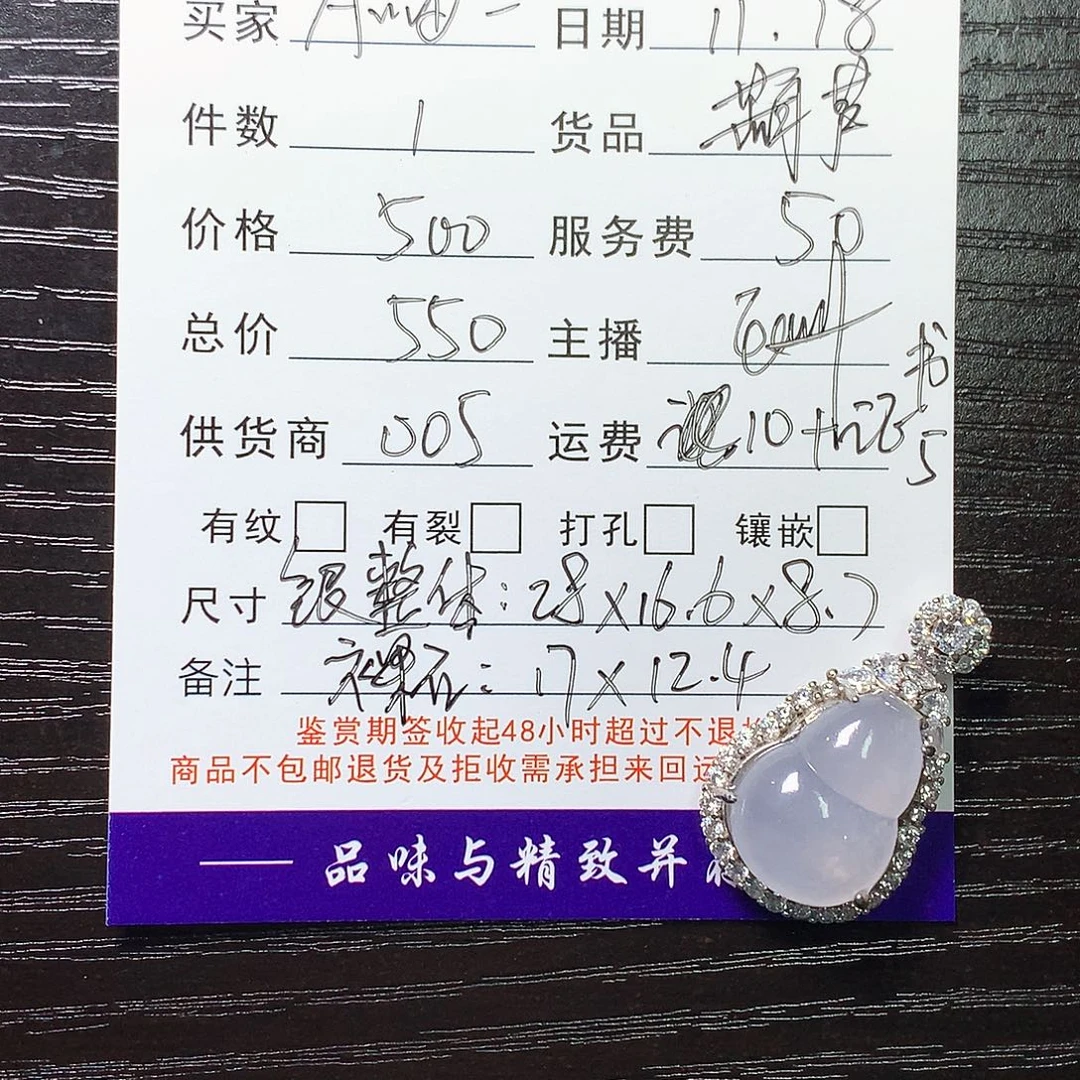 买家 日期 11.18
件数 1 货品 葫芦
价格 500 服务费 50
总价 550 主播
供货商 005 运费 10+证书5
有纹 有裂 打孔 镶嵌
尺寸 银整体：28×16.6×8.7
备注 裸石：17×12.4
鉴赏期签收起48小时超过不退
商品不包邮退货及拒收需承担来回运
品味与精致并